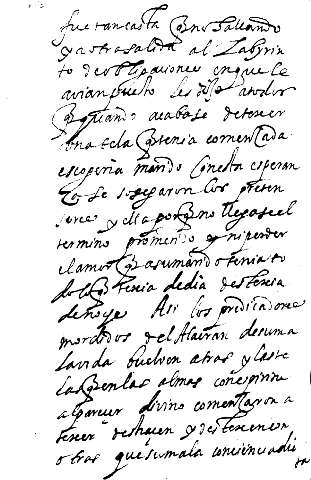 fue tan casta q̃ no hallando
ya otra salida al Labyrin
to de obligaciones en que le
avian puesto les dijo a todos
q̃ quando acabase de texer
una tela q̃ tenia comensada
escogeria marido con esta esperan
za se sosegaron los preten
sores y ella porq̃ no llegase el
termino prometido y ni perder
el amor q̃ a su marido tenia to
do lo q̃ texia de dia destexia
de noche Asi los predicadores
mordidos del Alacran de su ma
la vida buelven atras y las te
las q̃ en las almas con espiritu
al parecer divino comensaron a
texer deshacen y destexen con
otras que su mala conciencia di